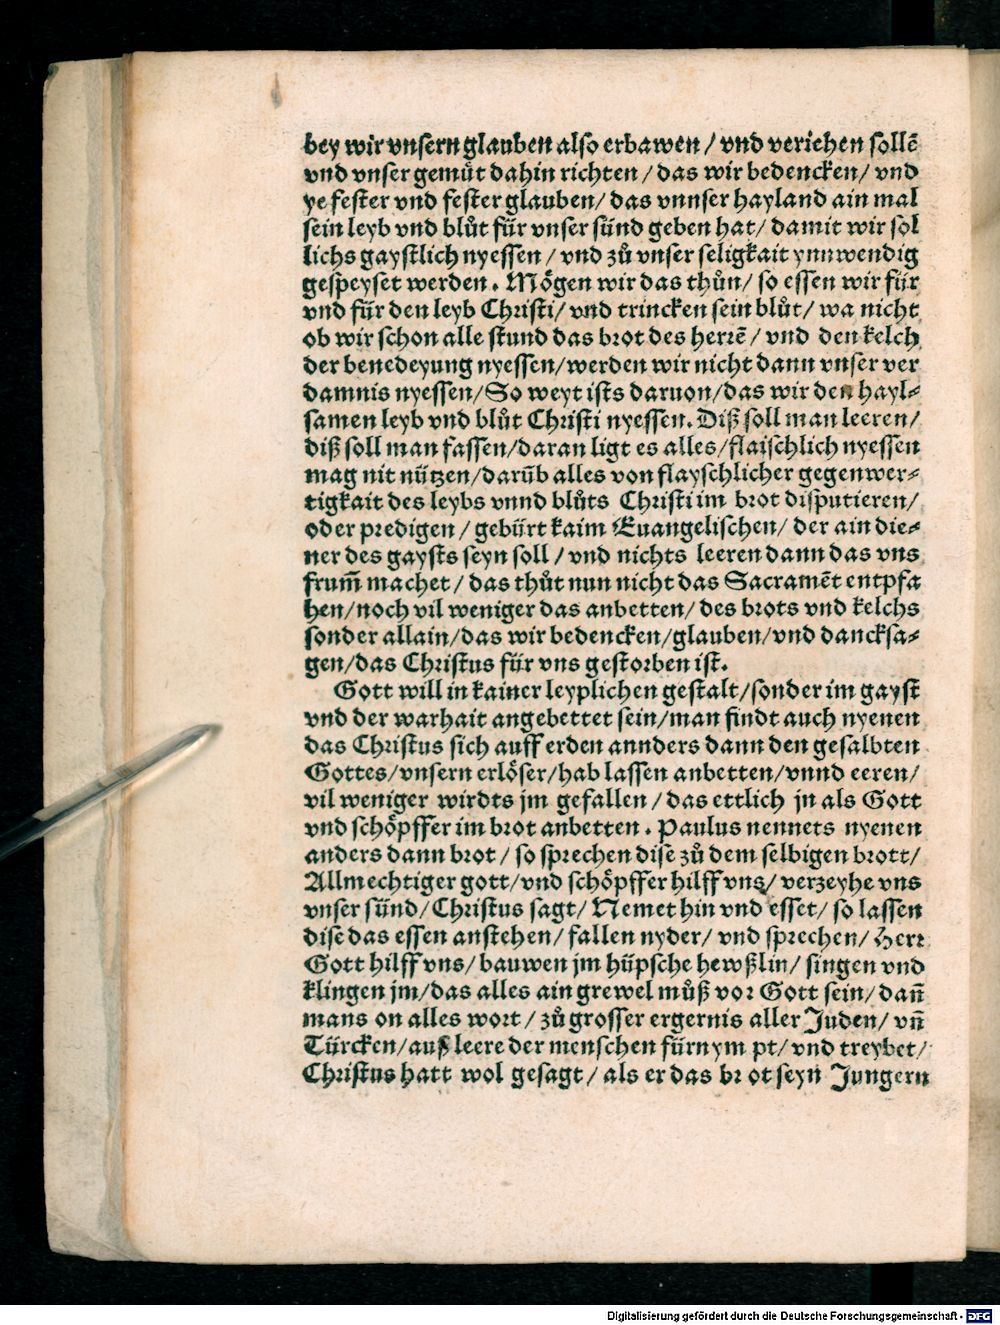 bey wir vnsern glauben also erbawen / vnd veriehen sollē
vnd vnser gemuͤt dahin richten / das wir bedencken / vnd
ye fester vnd fester glauben / das vnnser hayland ain mal
sein leyb vnd bluͦt für vnser sünd geben hat / damit wir sol
lichs gaystlich nyessen / vnd zuͦ vnser seligkait ynnwendig
gespeyset werden. Moͤgen wir das thuͦn / so essen wir für
vnd für den leyb Christi / vnd trincken sein bluͦt / wa nicht
ob wir schon alle stund das brot des herrē / vnd den kelch
der benedeyung nyessen / werden wir nicht dann vnser ver
damnis nyessen / So weyt ists daruon / das wir den hayl⸗
samen leyb vnd bluͦt Christi nyessen. Diß soll man leeren /
diß soll man fassen / daran ligt es alles / flaischlich nyessen
mag nit nützen / darüb alles von flayschlicher gegenwer⸗
tigkait des leybs vnnd bluͦts Christi im brot disputieren /
oder predigen / gebürt kaim Euangelischen / der ain die⸗
ner des gaysts seyn soll / vnd nichts leeren dann das vns
frum̄ machet / das thuͦt nun nicht das Sacramēt entpfa
hen / noch vil weniger das anbetten / des brots vnd kelchs
sonder allain / das wir bedencken / glauben / vnd dancksa⸗
gen / das Christus für vns gestorben ist.
Gott will in kainer leyplichen gestalt / sonder im gayst
vnd der warhait angebettet sein / man findt auch nyenen
das Christus sich auff erden annders dann den gesalbten
Gottes / vnsern erloͤser / hab lassen anbetten / vnnd eeren /
vil weniger wirdts jm gefallen / das ettlich jn als Gott
vnd schoͤpffer im brot anbetten. Paulus nennets nyenen
anders dann brot / so sprechen dise zuͦ dem selbigen brott /
Allmechtiger gott / vnd schoͤpffer hilff vns / verzeyhe vns
vnser sünd / Christus sagt / Nemet hin vnd esset / so lassen
dise das essen anstehen / fallen nyder / vnd sprechen / Herr
Gott hilff vns / bauwen jm hüpsche hewßlin / singen vnd
klingen jm / das alles ain grewel muͦß vor Gott sein / dañ
mans on alles wort / zuͦ grosser ergernis aller Juden / vñ
Türcken / auß leere der menschen fürnympt / vnd treybet /
Christus hatt wol gesagt / als er das brot seyn Jungern
Digitalisierung gefördert durch die Deutsche Forschungsgemeinschaft - DFG